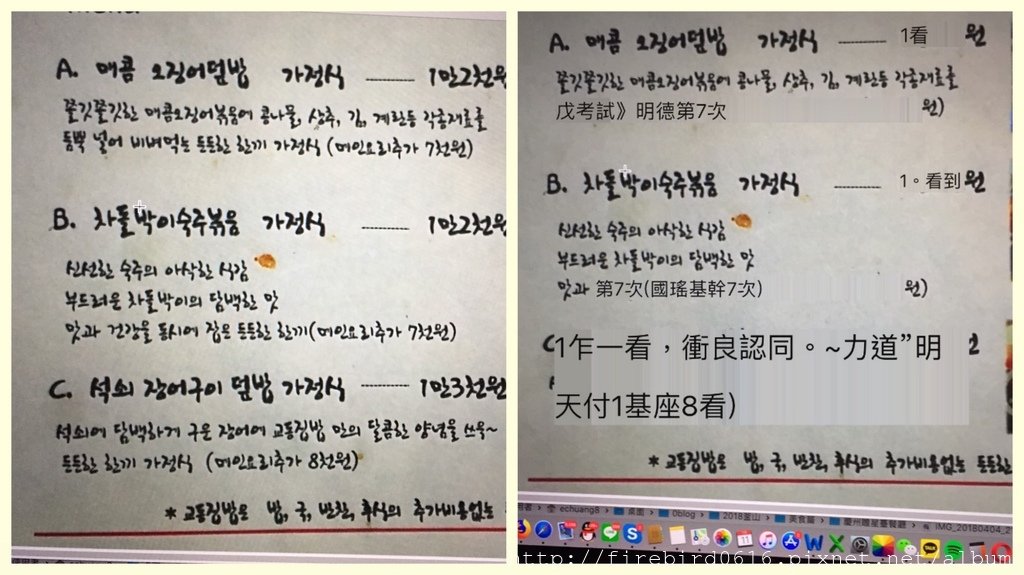 A. 매콤 오징어덮밥 가정식 ........... 1만2천원
쫄깃쫄깃한 매콤오징어볶음에 콩나물, 상추, 김, 계란등 각종재료를
듬뿍 넣어 비벼먹는 든든한 한끼 가정식 (메인요리추가 7천원)
B. 차돌박이숙주볶음 가정식 ........... 1만2천원
신선한 숙주의 아삭한 식감
부드러운 차돌박이의 담백한 맛
맛과 건강을 동시에 잡은 든든한 한끼(메인요리추가 7천원)
C. 석쇠 장어구이 덮밥 가정식 ........... 1만3천원
석쇠에 담백하게 구운 장어에 교동집밥 만의 달콤한 양념을 쓰윽~
든든한 한끼 가정식 (메인요리추가 8천원)
* 교동집밥은 밥, 국, 반찬, 후식의 추가비용없는
A. 매콤 오징어덮밥 가정식 ........... 1看 원
쫄깃쫄깃한 매콤오징어볶음에 콩나물, 상추, 김, 계란등 각종재료를
戊考試》明德第7次 원)
B. 차돌박이숙주볶음 가정식 ........... 1。看到원
신선한 숙주의 아삭한 식감
부드러운 차돌박이의 담백한 맛
맛과 第7次(國瑤基幹7次) 원)
C
1乍一看，衝良認同。~力道”明
天付1基座8看)
* 교동집밥은 밥, 국, 반찬, 후식의 추가비용없는 든든한
echuang8 桌面 0blog 2018釜山 美食篇 慶州瞻星臺餐廳 IMG_20180404_2
http://firebird0616.pixnet.net/album